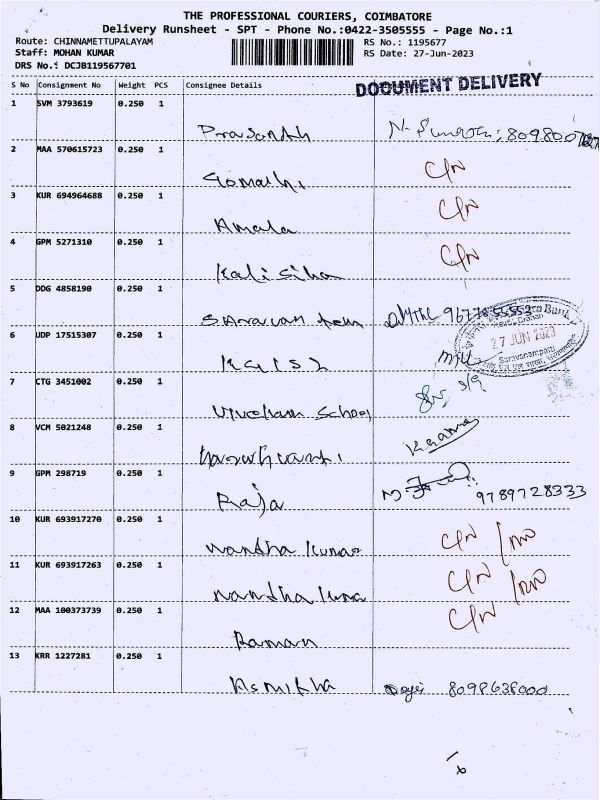 THE PROFESSIONAL COURIERS, COIMBATORE
Delivery Runsheet - SPT - Phone No.:0422-3505555 - Page No.:1
Route: CHINNAMETTUPALAYAM RS No.: 1195677
Staff: MOHAN KUMAR RS Date: 27-Jun-2023
DRS No.: DCJB119567701
DOCUMENT DELIVERY
S No Consignment No Weight PCS Consignee Details
1 SVM 3793619 0.250 1
Prasandh
2 MAA 570615723 0.250 1
Gomathi C/N
3 KUR 694964688 0.250 1
Amala C/N
4 GPM 5271310 0.250 1
Kali Siha C/N
5 DDG 4858190 0.250 1
27 JUN 2023
Saravanampatti
6 UDP 17515307 0.250 1
7 CTG 3451002 0.250 1
School
8 VCM 5021248 0.250 1
9 GPM 298719 0.250 1
Raja 9789728333
10 KUR 693917270 0.250 1
Nandha Kumar C/N
11 KUR 693917263 0.250 1
Nandha C/N
12 MAA 100373739 0.250 1
Raman C/N
13 KRR 1227281 0.250 1
Asmitha 8098638000